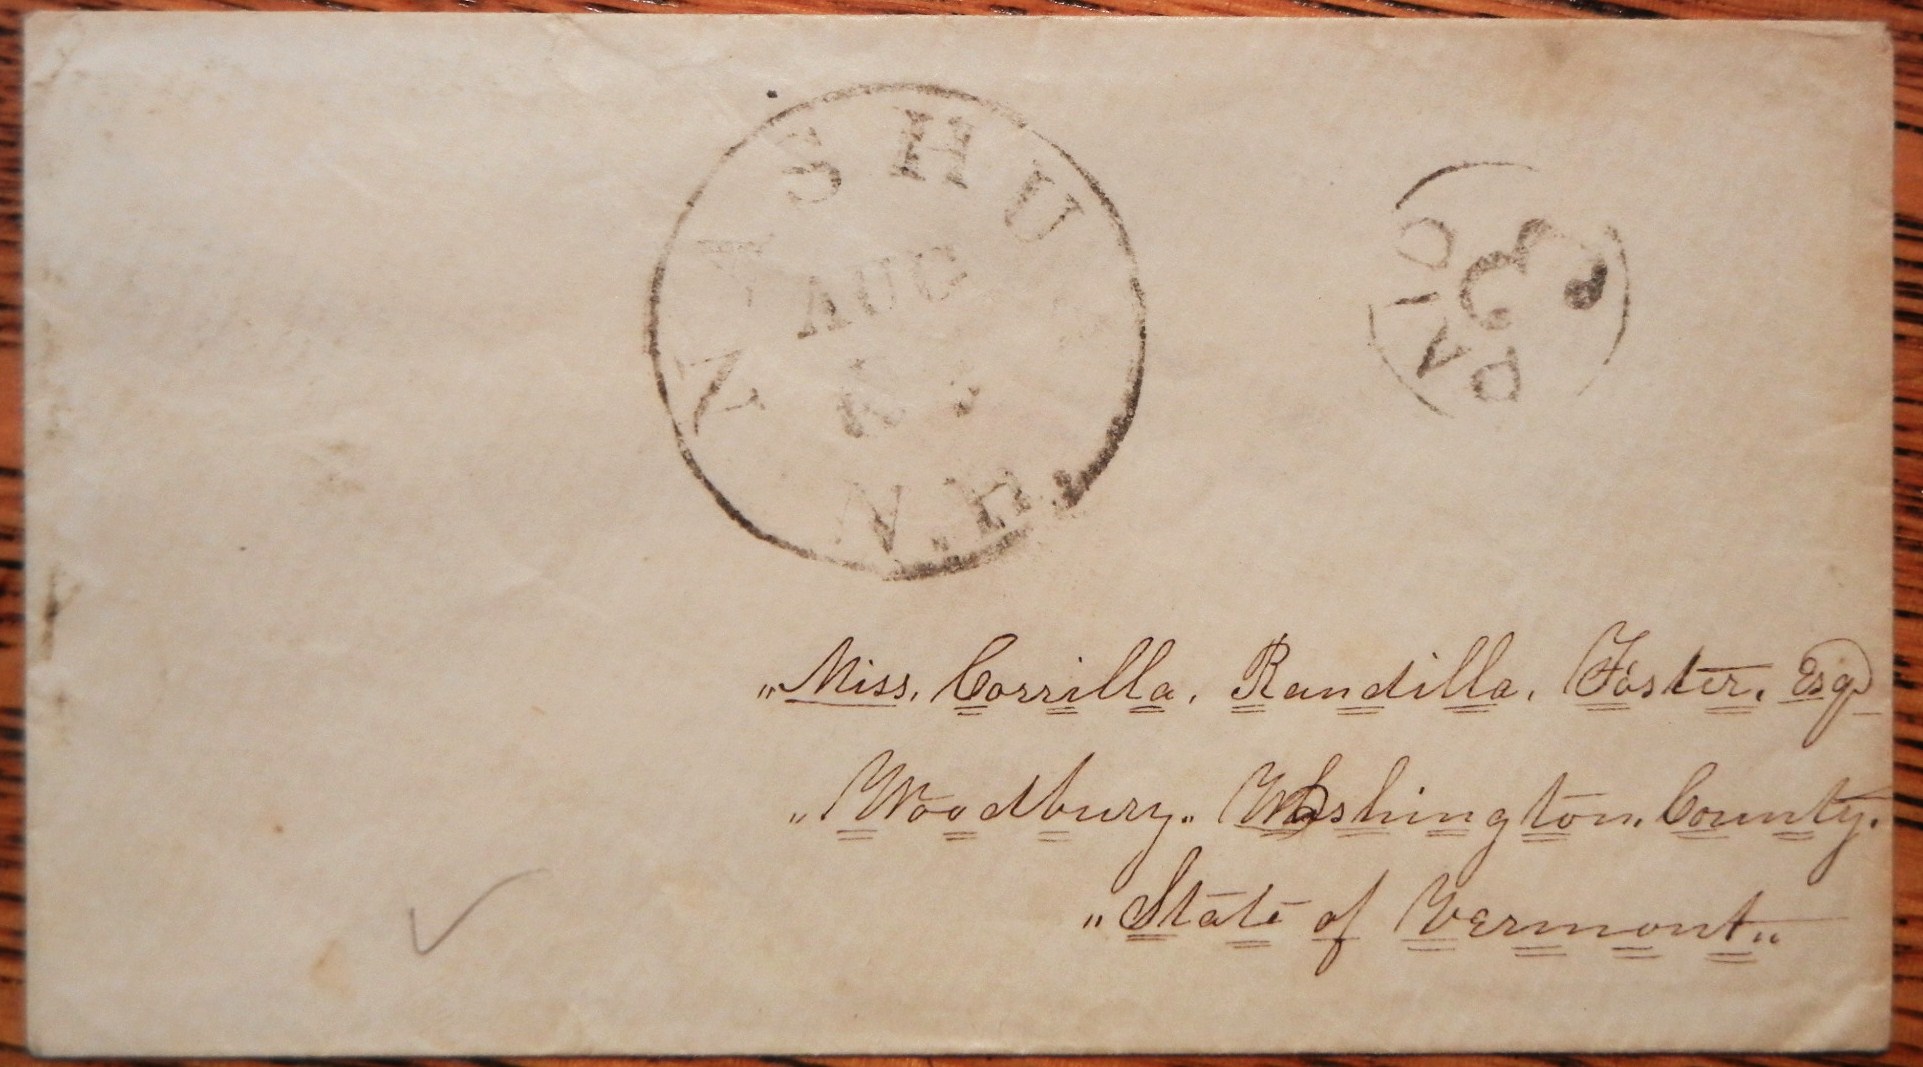 NASHUA
AUG
N.H.
PAID
3
„Miss. Corrilla. Randilla. Foster. Esq.
„Woodbury„ Washington. County.
„State of Vermont„